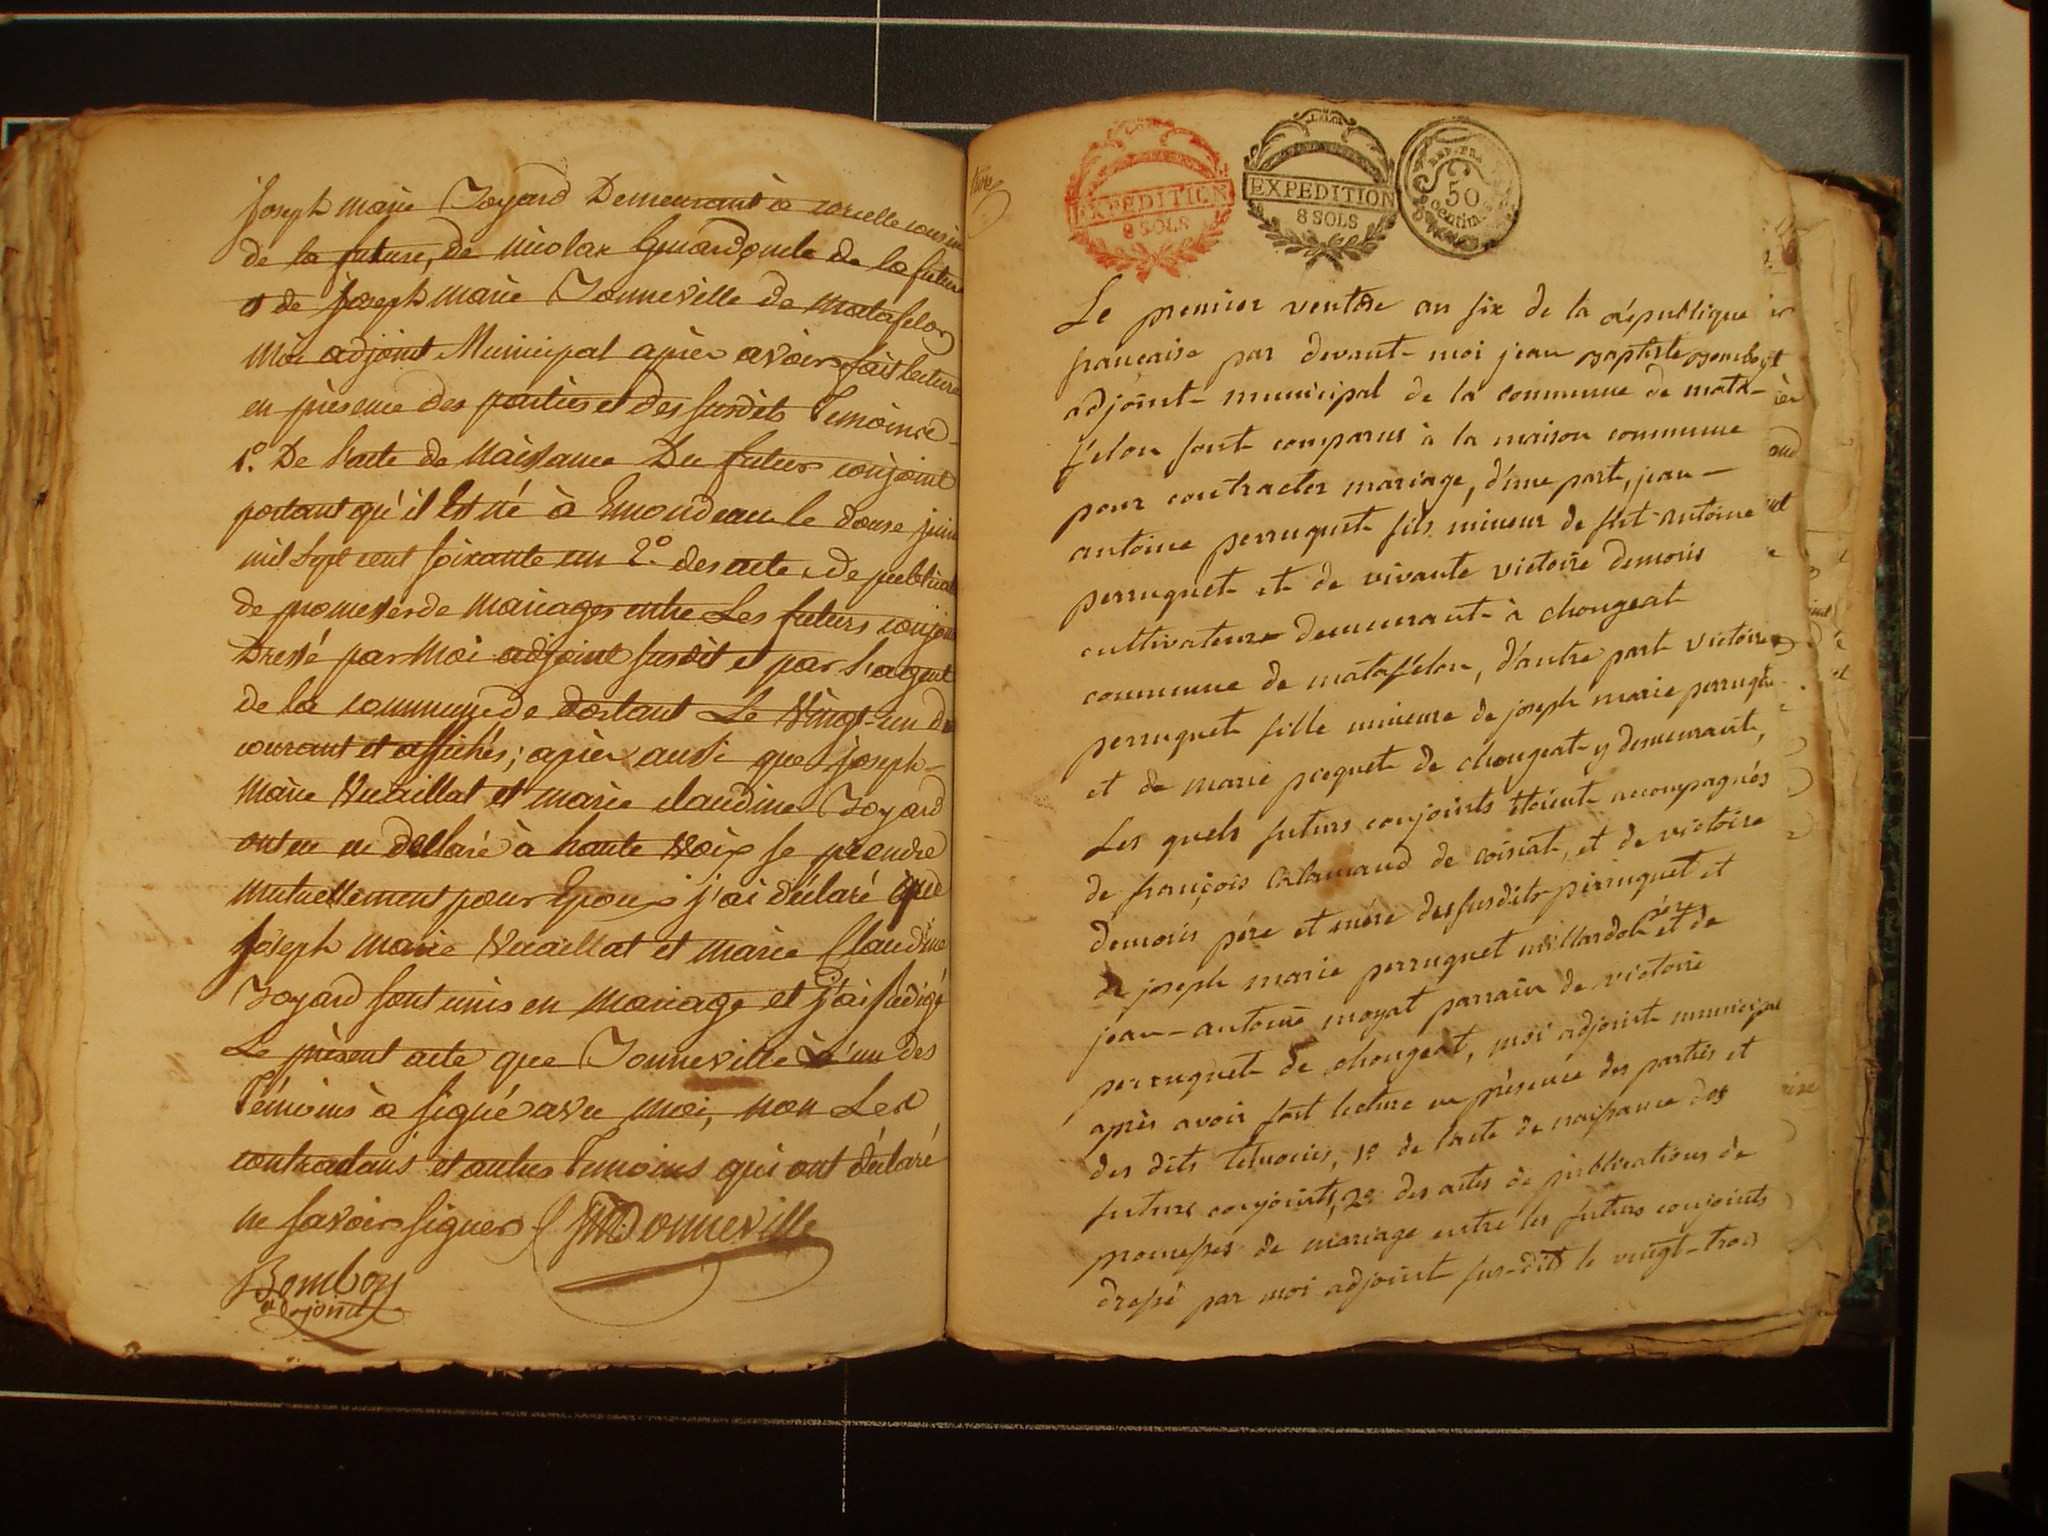 Joseph marie Joyard Demeurant à corcelle cousin
de la future, de nicolas Guiard oncle de la future
et de Joseph marie Jonneville de matafelon
Moi adjoint Municipal après avoir fait lecture
en présence des parties et des susdits Temoins
1º. De l'acte de Naissance Du futur conjoint
portant qu'il Est né à Emondeau le douze juin
mil sept cent soixante un 2º. des actes de publicat
de promesses de mariages entre Les futurs conjoints
Dressé par Moi adjoint susdit et par l'agent
de la commune de dortant Le Vingt-un du
courant et affichés; après aussi que joseph
Marie Vuaillat et marie claudine Joyard
ont eu declaré à haute Voix se prendre
mutuellement pour Epoux j'ai déclaré que
joseph marie Vuaillat et marie Claudine
Joyard sont unis en mariage et j'ai rédigé
Le présent acte que Jonneville L'un des
Témoins à signé avec moi, non Les
contractans et autres Temoins qui ont déclaré
ne savoir signer JMDonneville
Bemboy
adjoint
EXPEDITION
8 SOLS
EXPEDITION
8 SOLS
REP. FRA.
50
centim.
Le premier ventôse an six de la république
francaise par devant moi jean baptiste bemboy
adjoint municipal de la commune de mata-
felon sont comparus à la maison commune
pour contracter mariage, d'une part, jean-
antoine perruquet fils mineur de fut antoine
perruquet et de vivante victoire demoris
cultivateurs demeurant à chougeat
commune de matafelon, d'autre part victoire
perruquet fille mineure de joseph marie perruquet
et de marie picquet de chougeat y demeurant,
Les quels futurs conjoints étoient accompagnés
de françois allamand de coisiat, et de victoire
demoris père et mére des susdits perruquet et
de joseph marie perruquet millardot père et de
jean-antoine moyat parrain de victoire
perruquet de chougeat, moi adjoint municipal
après avoir fait lecture en présence des parties et
des dits temoins, 1º de l'acte de naissance des
futurs conjoints, 2º des actes de publications de
promesses de mariage entre les futurs conjoints
dressé par moi adjoint sus-dit le vingt-trois